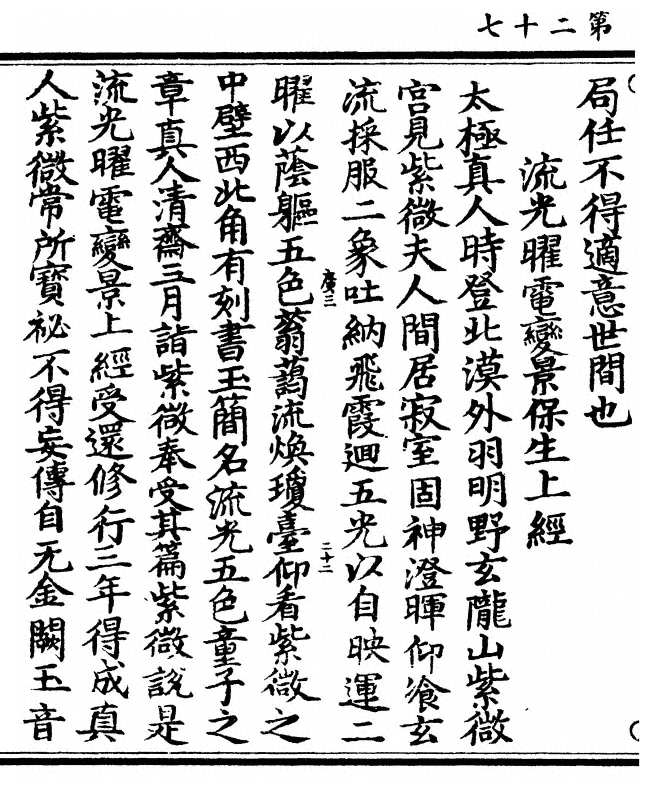 第二十七
局任不得適意世間也
流光曜電變景保生上經
太極真人時登北漠外羽明野玄隴山紫微
宫見紫微夫人間居寂室固神澄暉仰飡玄
流採服二象吐納飛霞迴五光以自映運二
廣三
二十二
曜以蔭軀五色蓊藹流煥瓊臺仰看紫微之
中壁西北角有刻書玉簡名流光五色童子之
章真人清齋三月詣紫微奉受其篇紫微說是
流光曜電變景上經受還修行三年得成真
人紫微常所寶祕不得妄傳自无金闕玉音